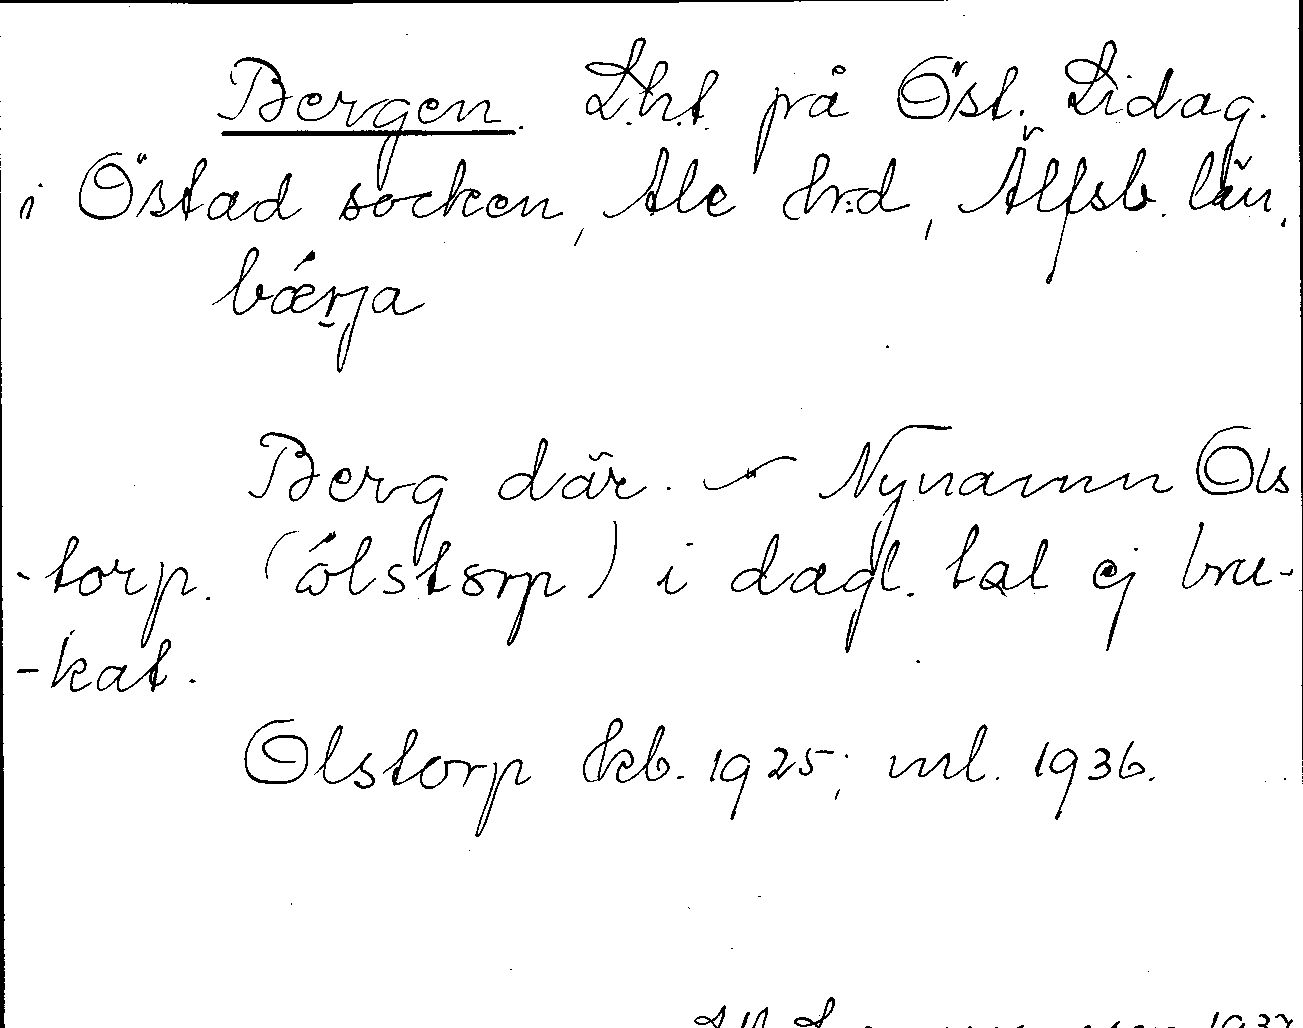 Bergen. Lht. på Öst. Lidag.
i Östad socken, Ale hrd, Älfsb. län.
bǽrja
Berg där. – Nynamn Ols
-torp. (ólstorp) i dagl. tal ej bru-
-kat.
Olstorp hkb. 1925; ml. 1936.
1937